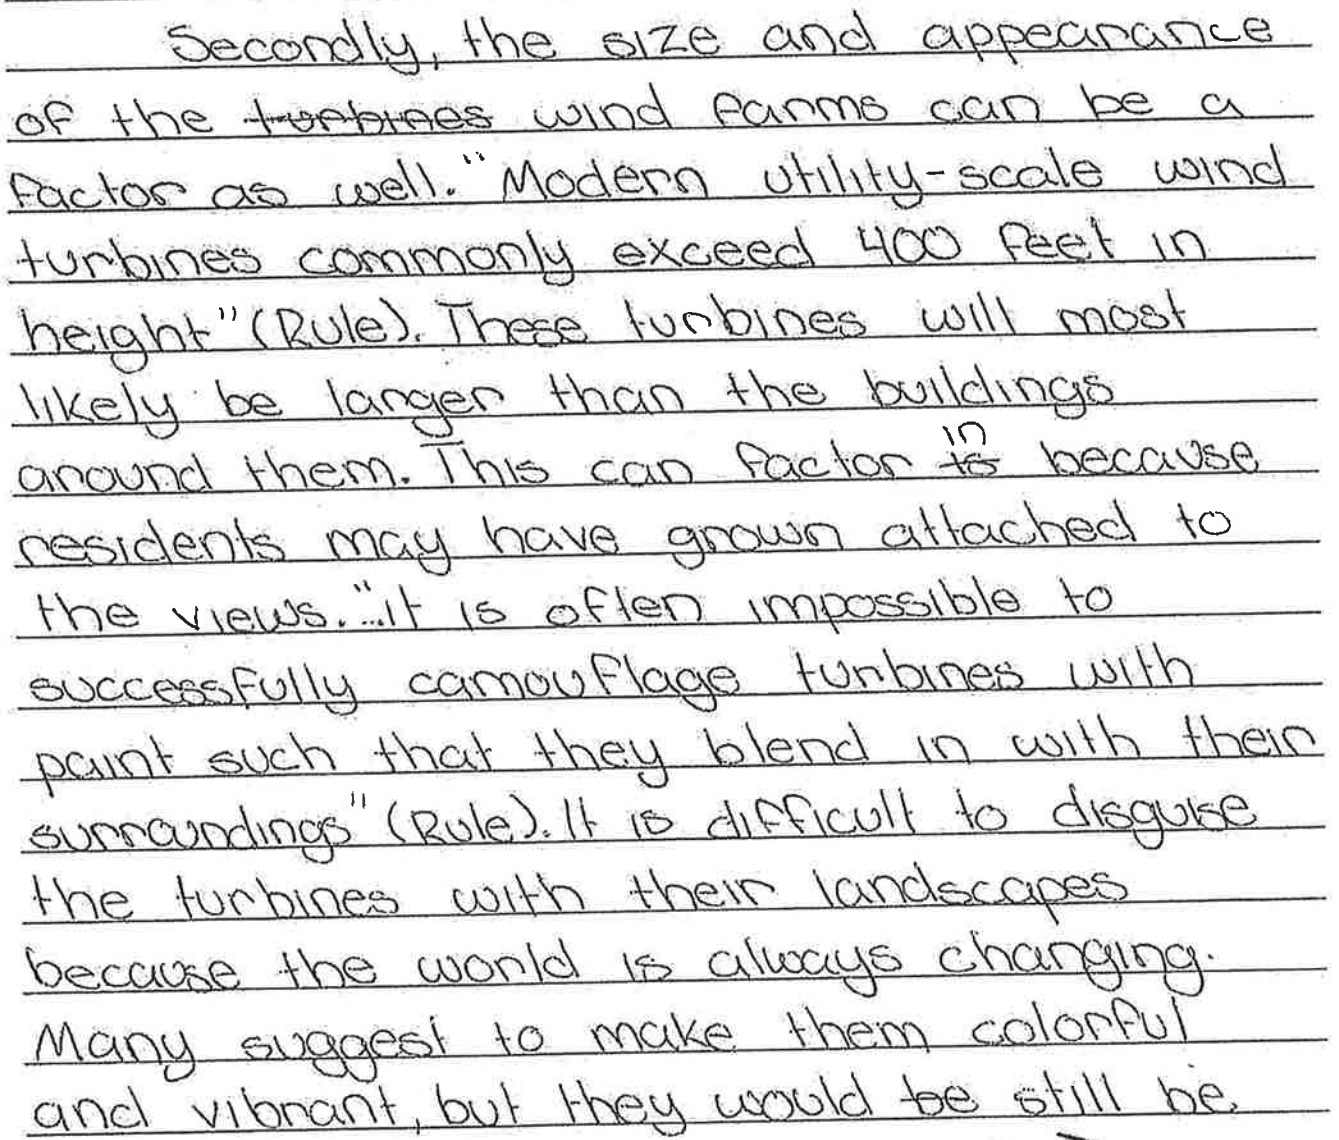 Secondly, the size and appearance
of the ~~turbines~~ wind farms can be a
factor as well. "Modern utility-scale wind
turbines commonly exceed 400 feet in
height" (Rule). These turbines will most
likely be larger than the buildings
around them. This can factor ~~to~~ in because
residents may have grown attached to
the views. "...it is often impossible to
successfully camouflage turbines with
paint such that they blend in with their
surroundings" (Rule). It is difficult to disguise
the turbines with their landscapes
because the world is always changing.
Many suggest to make them colorful
and vibrant, but they would ~~be~~ still be